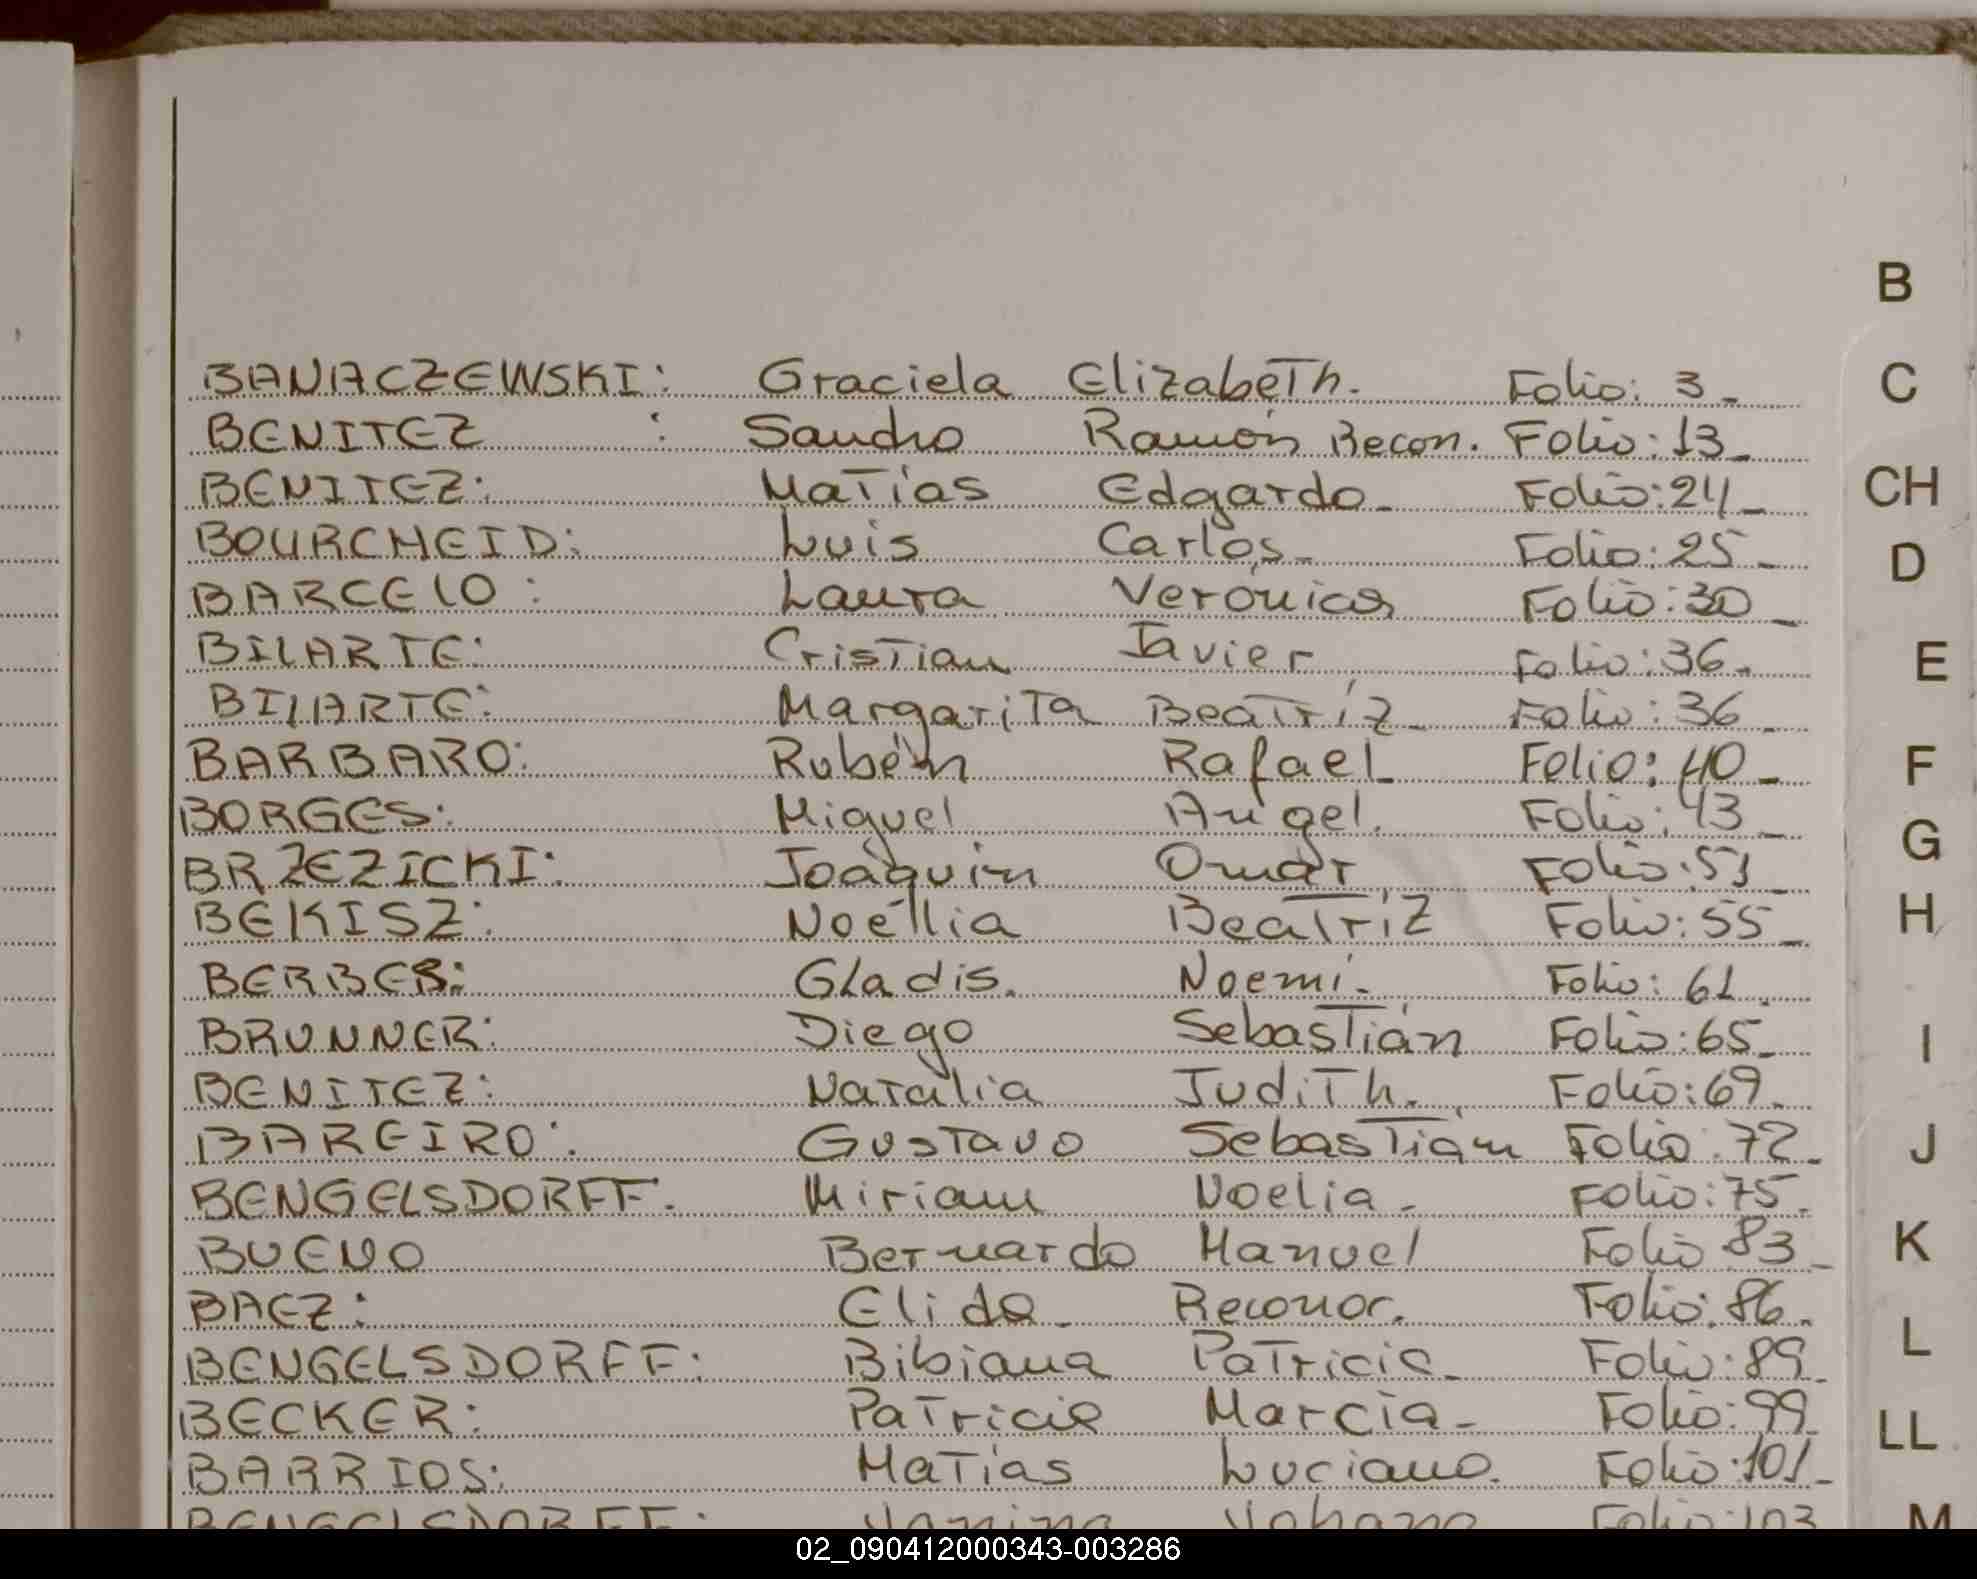 BANACZEWSKI: Graciela Elizabeth. Folio: 3_
BENITEZ : Sandro Ramón Recon. Folio: 13_
BENITEZ: Matías Edgardo_ Folio: 24_
BOURCHEID: Luis Carlos_ Folio: 25_
BARCELO: Laura Verónica Folio: 30_
BILARTE: Cristian Javier Folio: 36_
BILARTE: Margarita Beatríz_ Folio: 36_
BARBARO: Rubén Rafael_ Folio: 40_
BORGES: Miguel Angel. Folio: 43_
BRZEZICKI: Joaquin Omar. Folio: 51_
BEKISZ: Noéllia Beatriz Folio: 55_
BERBER: Gladis. Noemí. Folio: 61.
BRUNNER: Diego Sebastián Folio: 65_
BENITEZ: Natalia Judith. Folio: 69_
BAREIRO: Gustavo Sebastián Folio: 72_
BENGELSDORFF: Miriam Noelia_ Folio: 75_
BUENO Bernardo Manuel Folio 83_
BAEZ: Elida_ Reconor. Folio: 86_
BENGELSDORFF: Bibiana Patricia_ Folio: 89_
BECKER: Patricia Marcia_ Folio: 99_
BARRIOS: Matías Luciano. Folio: 101_
BENGELSDORFF: Yanina Yohana Folio: 103
B
C
CH
D
E
F
G
H
I
J
K
L
LL
M
02_090412000343-003286